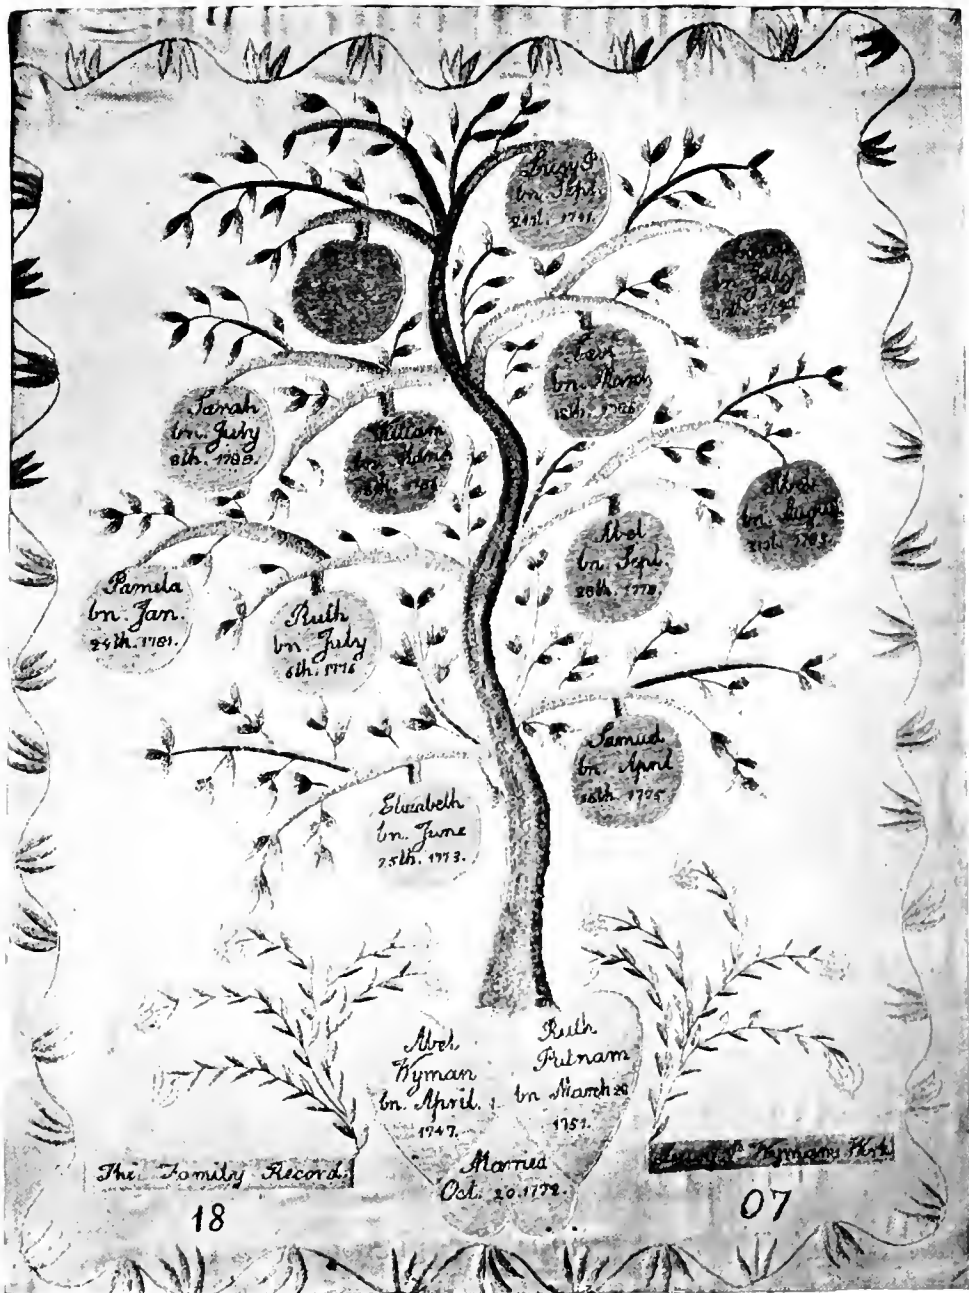 Lucy P.
bn. Sept.
1791.
bn. July
Levi
bn. March
1786
Sarah
bn. July
8th. 1788.
William
bn.
Abel
bn. August
21st.
Abel
bn. Sept.
28th. 1778
Pamela
bn. Jan.
24th. 1781.
Ruth
bn. July
6th. 1776
Samuel
bn. April
16th. 1775
Elizabeth
bn. June
25th. 1773.
Abel
Wyman
bn. April.
1747.
Ruth
Putnam
bn March 28
1751.
Married
Oct. 20 1772.
The Family Record.
Lucy P. Wyman's Work
18
07